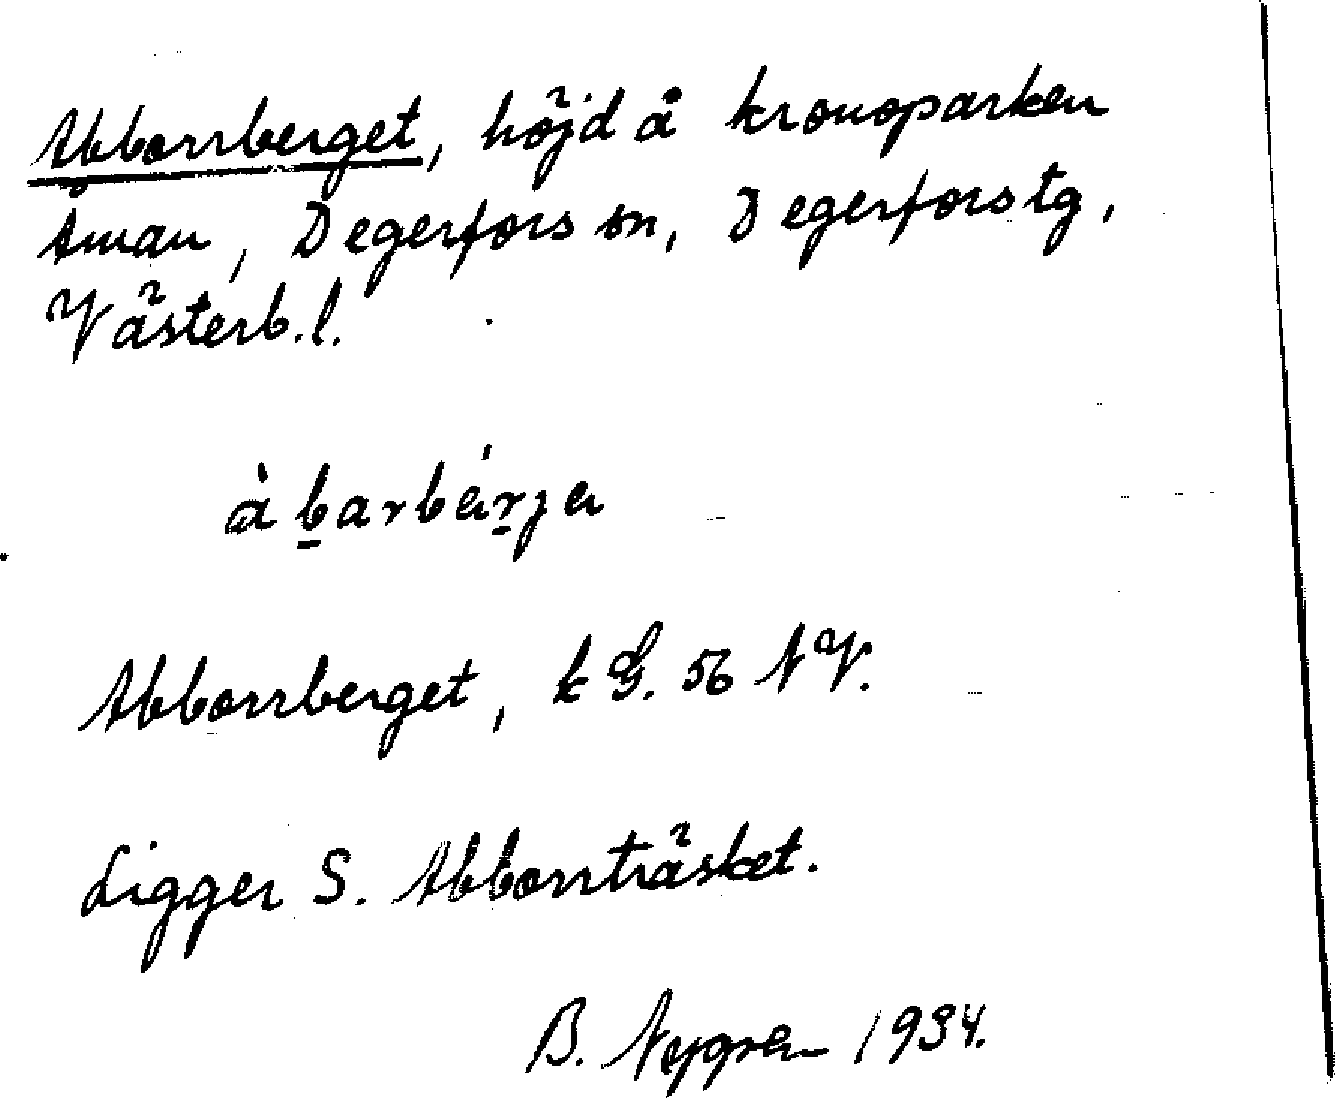 Abborrberget, höjd å kronoparken
Åman, Degerfors sn, Degerfors tg,
Västerb.l.
àbarbérja
Abborrberget, k G. 56 NV.
Ligger S. Abborrträsket.
B. Nygren 1934.